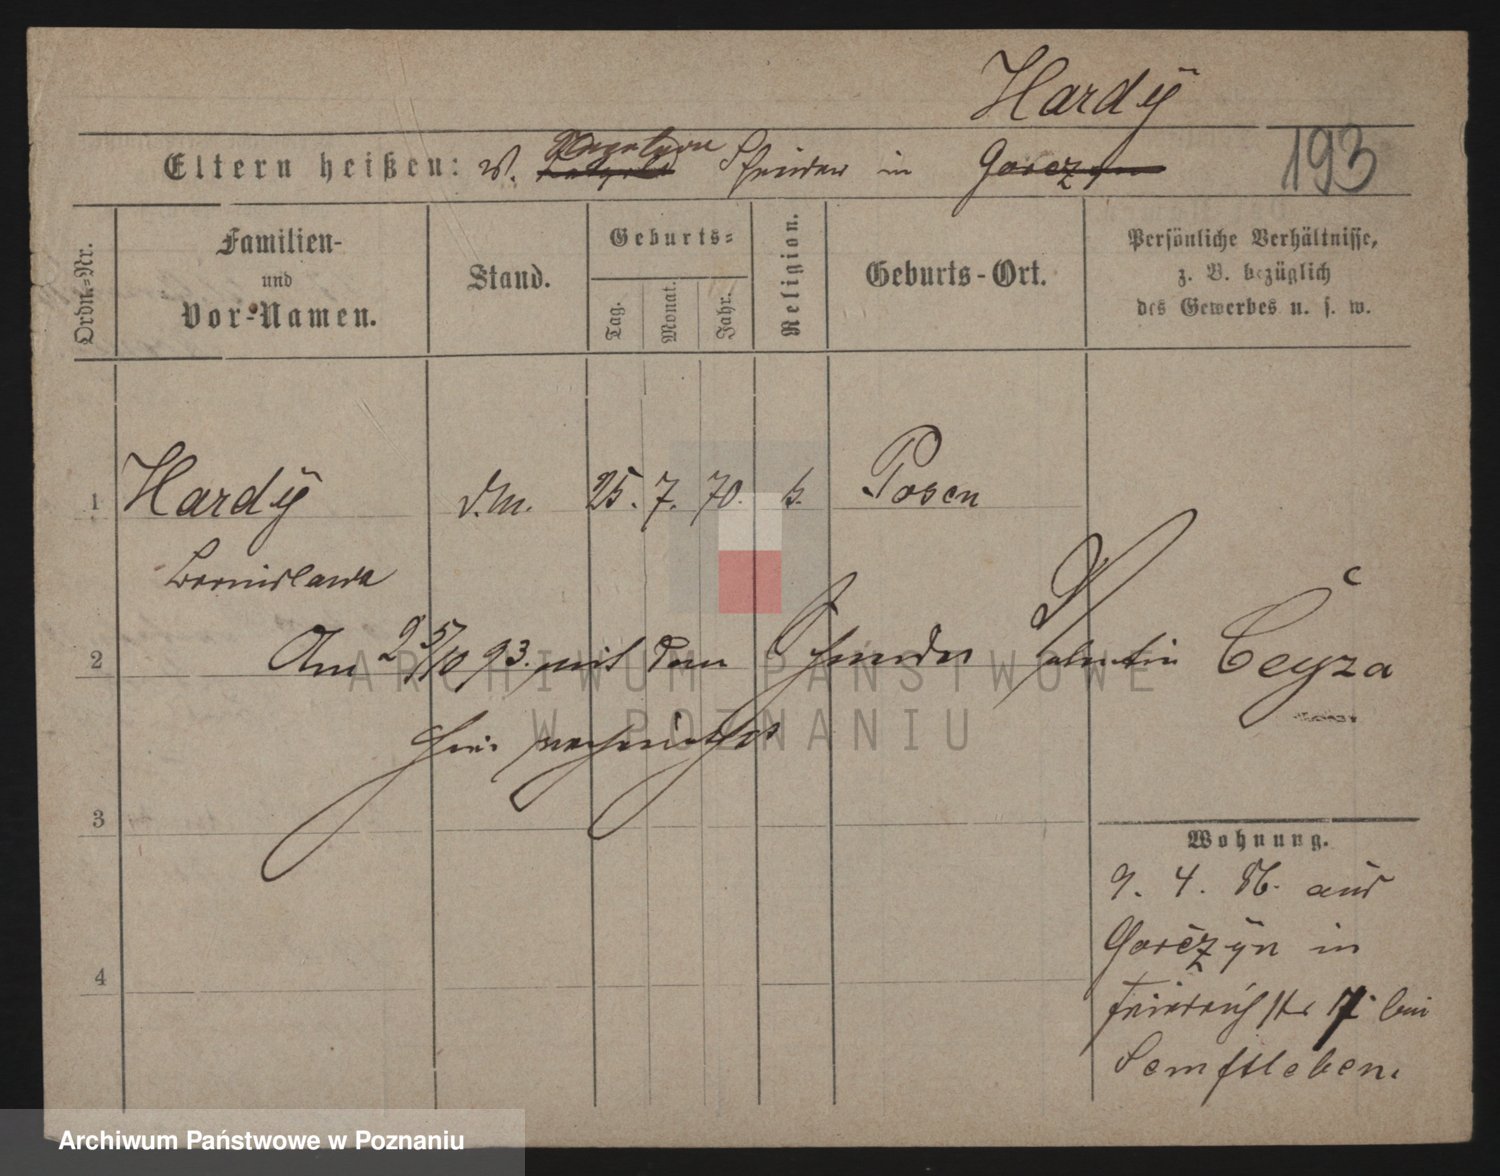 Hardÿ
Eltern heißen: W. Schneider in Gorczyn
193
Ordn.-Nr.
Familien-
und
Vor-Namen.
Stand.
Geburts-
Tag.
Monat.
Jahr.
Religion.
Geburts-Ort.
Persönliche Verhältnisse,
z. B. bezüglich
des Gewerbes u. s. w.
1 Hardÿ d. M. 25. 7. 70. k. Posen
Bronislawa
2 Am 25/10 93. mit dem Schneider Valentin Ceyza
hier verheirathet
3
Wohnung.
9. 4. 86. aus
Gorczyn in
4
Friedrichstr 17 bei
Senftleben.
ARCHIWUM PAŃSTWOWE
W POZNANIU
Archiwum Państwowe w Poznaniu